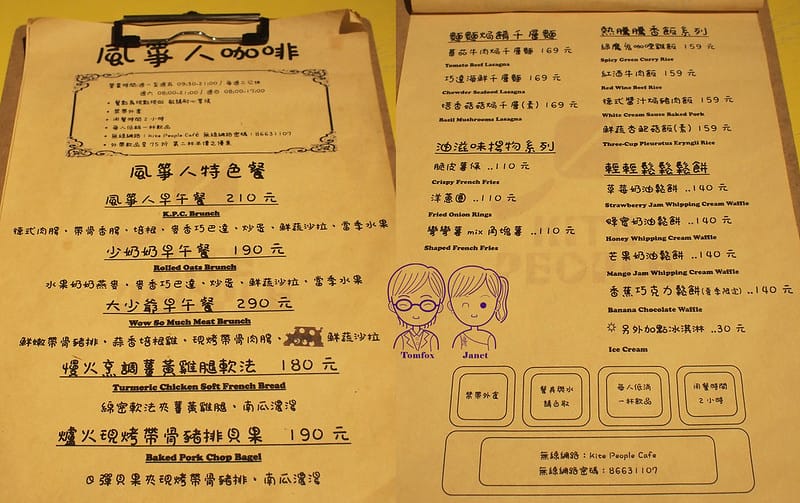 風箏人咖啡
營業時間:週一至週五 09:30-21:00 / 每週二公休
週六 08:00-21:00 / 週日 08:00-17:00
禁帶外食
用餐時間 2 小時
每人低銷一杯飲品
無線網路:Kite People Café 無線網路密碼:86631107
風箏人特色餐
風箏人早午餐 210 元
K.P.C. Brunch
德式肉腸、帶骨香腸、培根、麥香巧巴達、炒蛋、鮮蔬沙拉、當季水果
少奶奶早午餐 190 元
Rolled Oats Brunch
水果奶奶燕麥、麥香巧巴達、炒蛋、鮮蔬沙拉、當季水果
大少爺早午餐 290 元
Wow So Much Meat Brunch
鮮嫩帶骨豬排、蒜香培根雞、現烤帶骨肉腸、鮮蔬沙拉
慢火烹調薑黃雞腿軟法 180 元
Turmeric Chicken Soft French Bread
綿密軟法夾薑黃雞腿、南瓜濃湯
爐火現烤帶骨豬排貝果 190 元
Baked Pork Chop Bagel
Q彈貝果夾現烤帶骨豬排、南瓜濃湯
麵麵焗饍千層麵
蕃茄牛肉焗千層麵 169 元
Tomato Beef Lasagna
巧達海鮮千層麵 169 元
Chowder Seafood Lasagna
塔香菇菇焗千層(素) 169 元
Basil Mushrooms Lasagna
油滋味搜物系列
脆皮薯條 ..110 元
Crispy French Fries
洋蔥圈 ..110 元
Fried Onion Rings
彎彎薯 mix 角塊薯 ..110 元
Shaped French Fries
熱騰騰香飯系列
綠魔鬼咖哩雞飯 159 元
Spicy Green Curry Rice
紅酒牛肉飯 159 元
Red Wine Beef Rice
德式醬汁焗豬肉飯 159 元
White Cream Sauce Baked Pork
鮮蔬杏鮑菇飯(素) 159 元
Three-Cup Pleurotus Eryngii Rice
輕輕鬆鬆鬆餅
草莓奶油鬆餅 ..140 元
Strawberry Jam Whipping Cream Waffle
蜂蜜奶油鬆餅 ..140 元
Honey Whipping Cream Waffle
芒果奶油鬆餅 ..140 元
Mango Jam Whipping Cream Waffle
香蕉巧克力鬆餅(夏季限定) ..140 元
Banana Chocolate Waffle
另外加點冰淇淋 ..30 元
Ice Cream
Tomfox
Janet
禁帶外食
餐具與水
請自取
每人低消
一杯飲品
用餐時間
2 小時
無線網路:Kite People Cafe
無線網路密碼:86631107